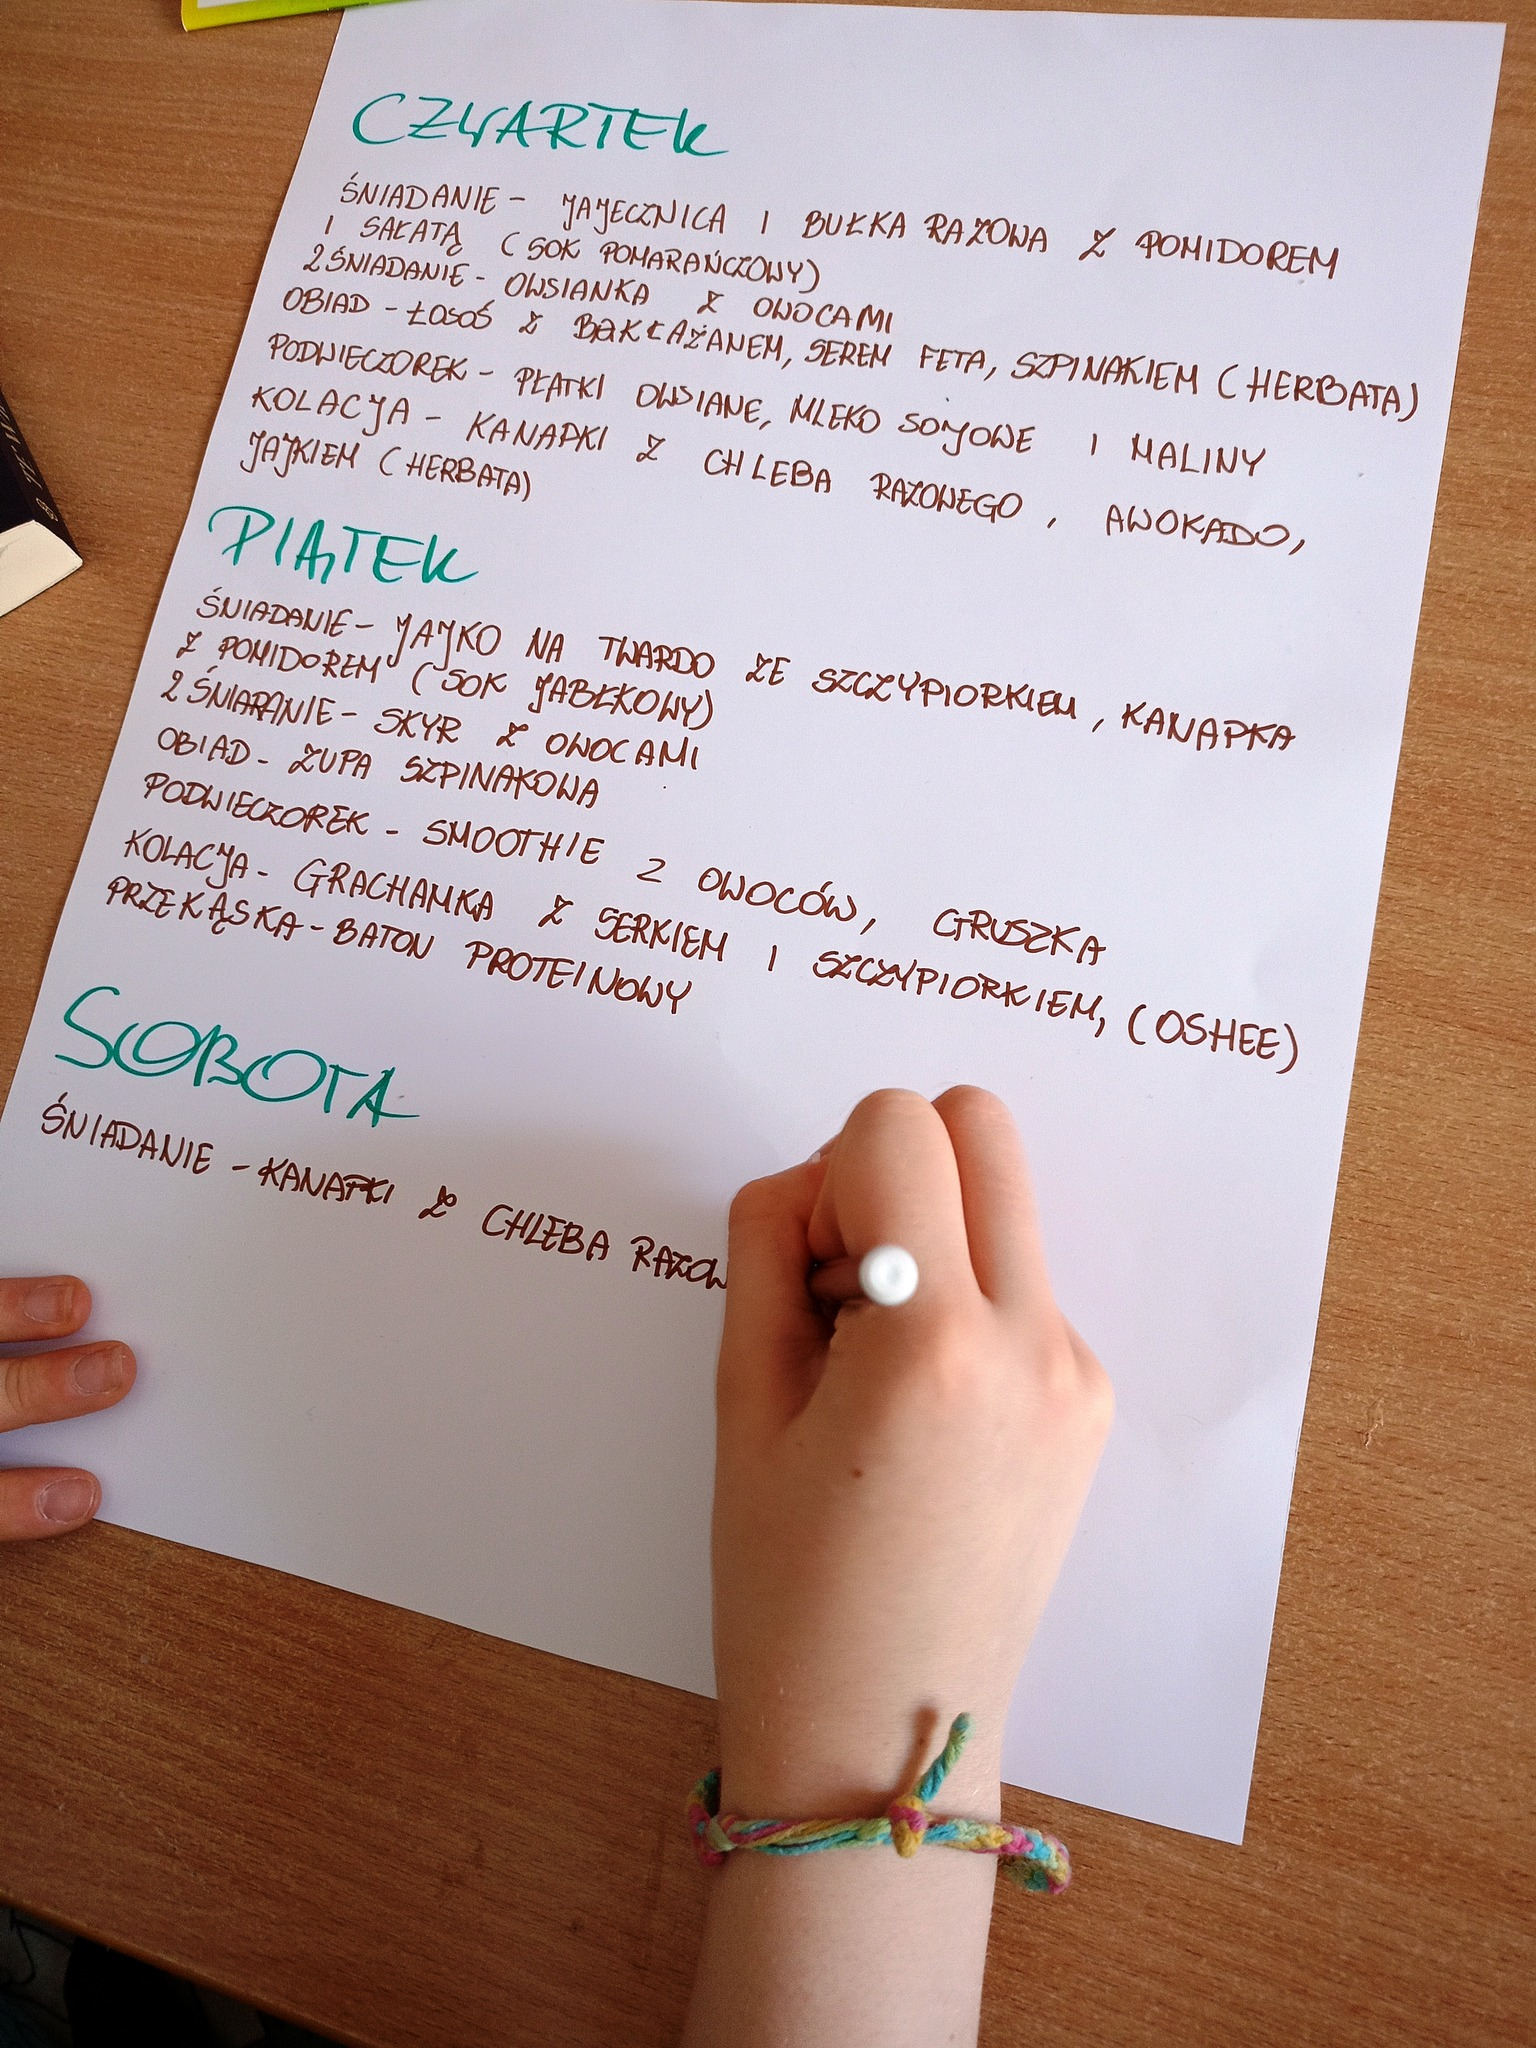 CZWARTEK
ŚNIADANIE - JAJECZNICA I BUŁKA RAZOWA Z POMIDOREM
I SAŁATĄ (SOK POMARAŃCZOWY)
2 ŚNIADANIE - OWSIANKA Z OWOCAMI
OBIAD - ŁOSOŚ Z BAKŁAŻANEM, SEREM FETA, SZPINAKIEM (HERBATA)
PODWIECZOREK - PŁATKI OWSIANE, MLEKO SOJOWE I MALINY
KOLACJA - KANAPKI Z CHLEBA RAZOWEGO, AWOKADO,
JAJKIEM (HERBATA)
PIĄTEK
ŚNIADANIE - JAJKO NA TWARDO ZE SZCZYPIORKIEM, KANAPKA
Z POMIDOREM (SOK JABŁKOWY)
2 ŚNIADANIE - SKYR Z OWOCAMI
OBIAD - ZUPA SZPINAKOWA
PODWIECZOREK - SMOOTHIE Z OWOCÓW, GRUSZKA
KOLACJA - GRACHAMKA Z SERKIEM I SZCZYPIORKIEM, (OSHEE)
PRZEKĄSKA - BATON PROTEINOWY
SOBOTA
ŚNIADANIE - KANAPKI Z CHLEBA RAZOW